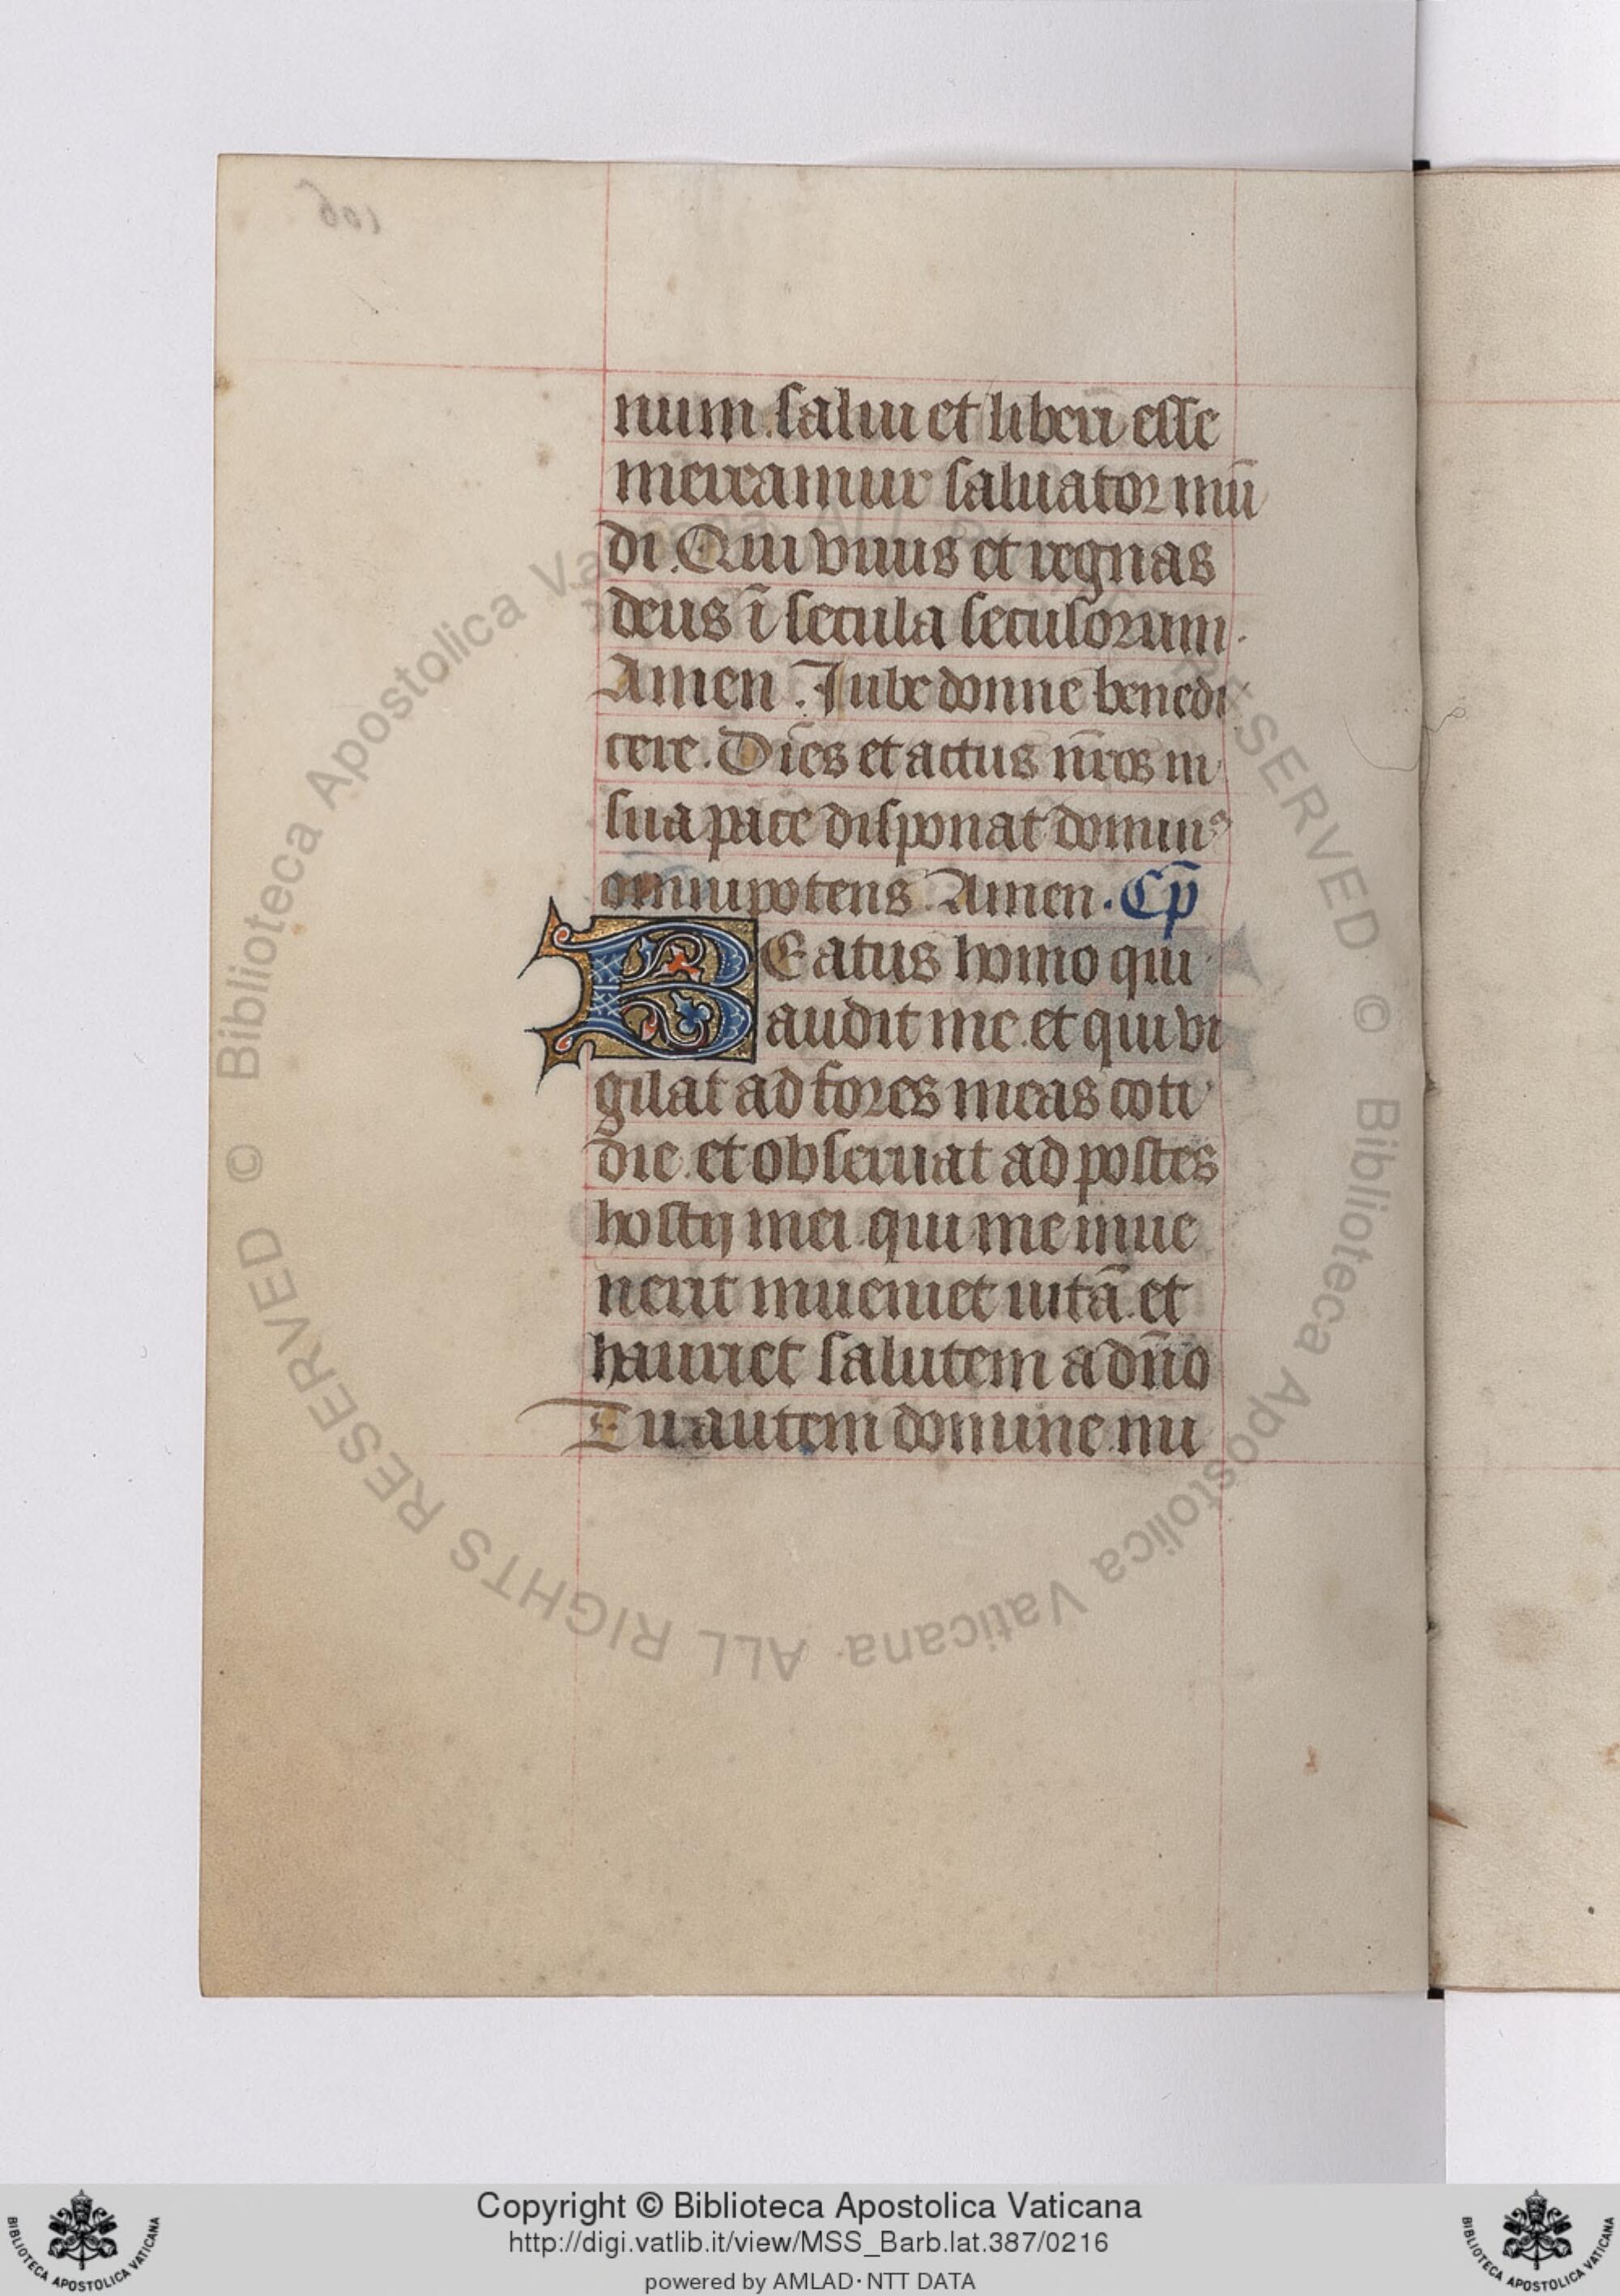 num salui et liberi esse
mereamur saluator mū
di. Qui viuis et regnas
deus ī secula seculorum.
Amen. Iube domne benedi
cere. Dies et actus nr̄os in
sua pace disponat dominꝰ
omnipotens Amen. Cp̄
BEatus homo qui
audit me et qui vi
gilat ad fores meas coti
die et obseruat ad postes
hostij mei qui me inue
nerit inueniet uitā et
hauriet salutem a dn̄o
Tu autem domine mi
106
Copyright © Biblioteca Apostolica Vaticana
http://digi.vatlib.it/view/MSS_Barb.lat.387/0216
powered by AMLAD·NTT DATA
BIBLIOTECA APOSTOLICA VATICANA
BIBLIOTECA APOSTOLICA VATICANA
© Biblioteca Apostolica Vaticana ALL RIGHTS RESERVED
© Biblioteca Apostolica Vaticana ALL RIGHTS RESERVED